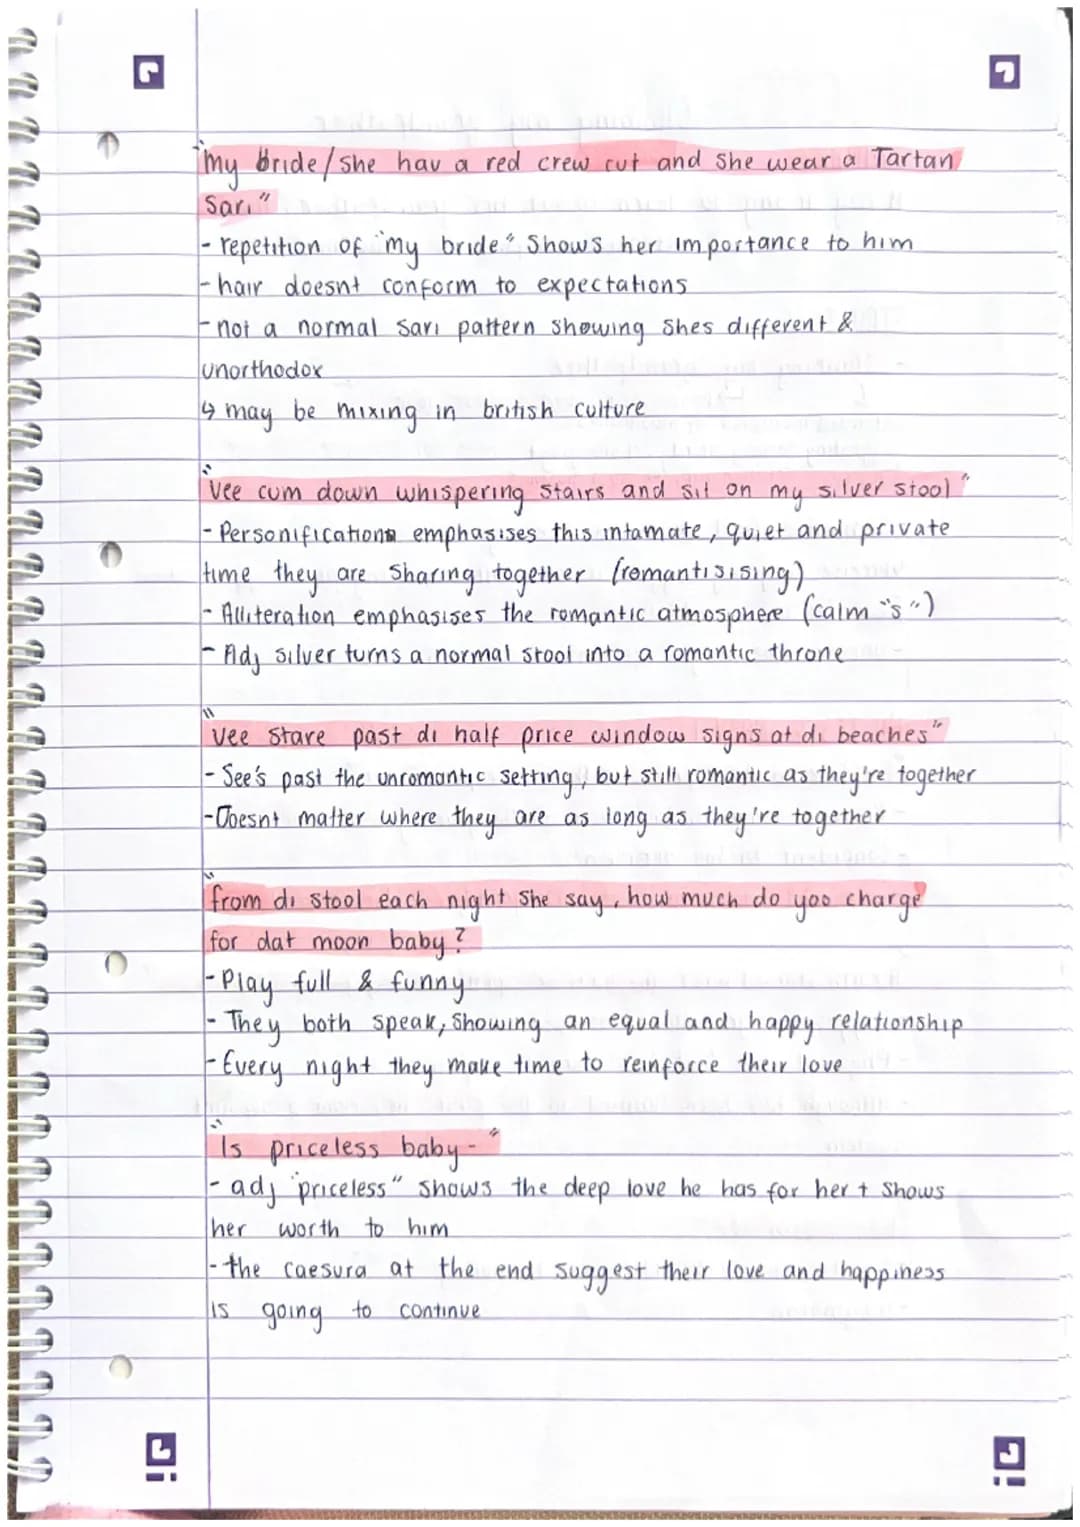 "my bride/she hav a red crew cut and she wear a Tartan
Sari"
- repetition of "my bride" shows her importance to him
- hair doesnt conform to expectations
- not a normal sari pattern showing shes different &
unorthodox
↳ may be mixing in british culture
"Vee cum down whispering stairs and sit on my silver stool"
- Personification emphasises this intamate, quiet and private
time they are sharing together (romantisising)
- Alliteration emphasises the romantic atmosphere (calm "s")
- Adj silver turns a normal stool into a romantic throne
"Vee stare past di half price window signs at di beaches"
- See's past the unromantic setting, but still romantic as they're together
- Doesnt matter where they are as long as they're together
"from di stool each night she say, how much do yoo charge
for dat moon baby?
- Play full & funny
- They both speak, showing an equal and happy relationship
- Every night they make time to reinforce their love
"Is priceless baby-"
- adj "priceless" shows the deep love he has for her + shows
her worth to him
- the caesura at the end suggest their love and happiness
is going to continue